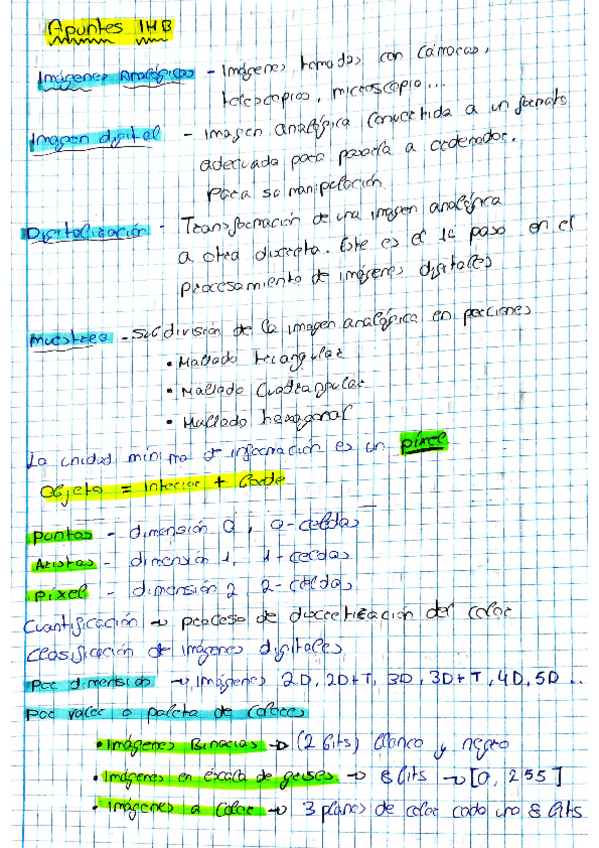 Apuntes IHB
Imágenes Analógicas - Imágenes tomadas con cámaras,
telescopios, microscopio...
Imagen digital - imagen analógica convertida a un formato
adecuado para pasarla a ordenador.
Para su manipulación
Digitalización - Transformación de una imagen analógica
a otra discreta. Este es el 1º paso en el
procesamiento de imágenes digitales
Muestreo - Subdivisión de la imagen analógica en porciones
• Mallado triangular
• Mallado Cuadrangular
• Mallado hexagonal
La unidad mínima de información es un píxel
Objeto = interior + borde
puntos - dimensión 0, 0-celdas
Aristas - dimensión 1, 1-celdas
píxel - dimensión 2, 2-celdas
Cuantificación → proceso de discretización del color
Clasificación de imágenes digitales
Por dimensión → Imágenes 2D, 2D+T, 3D, 3D+T, 4D, 5D ..
Por valor o paleta de colores
• Imágenes Binarias → (2 bits) blanco y negro
• Imágenes en escala de grises → 8 bits → [0, 255]
• Imágenes a color → 3 planos de color cada uno 8 bits